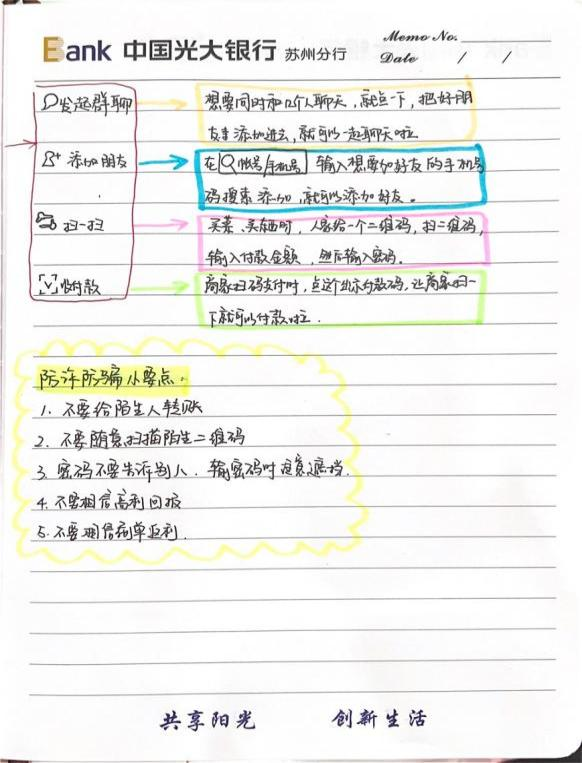 Bank 中国光大银行 苏州分行
Memo No.
Date / /
发起群聊
想要同时和几个人聊天,就点一下,把好朋
友添加进去,就可以一起聊天啦
添加朋友
在 帐号/手机号 输入想要加好友的手机号
码搜索添加,就可以添加好友。
扫一扫
买菜、买东西时,人家给一个二维码,扫二维码,
输入付款金额,然后输入密码.
收付款
商家扫码支付时,点这个出示付款码,让商家扫一
下就可以付款啦.
防诈防骗小要点.
1. 不要给陌生人转账
2. 不要随意扫描陌生二维码
3. 密码不要告诉别人、输密码时注意遮挡.
4. 不要相信高利回报
5. 不要相信刷单返利.
共享阳光 创新生活